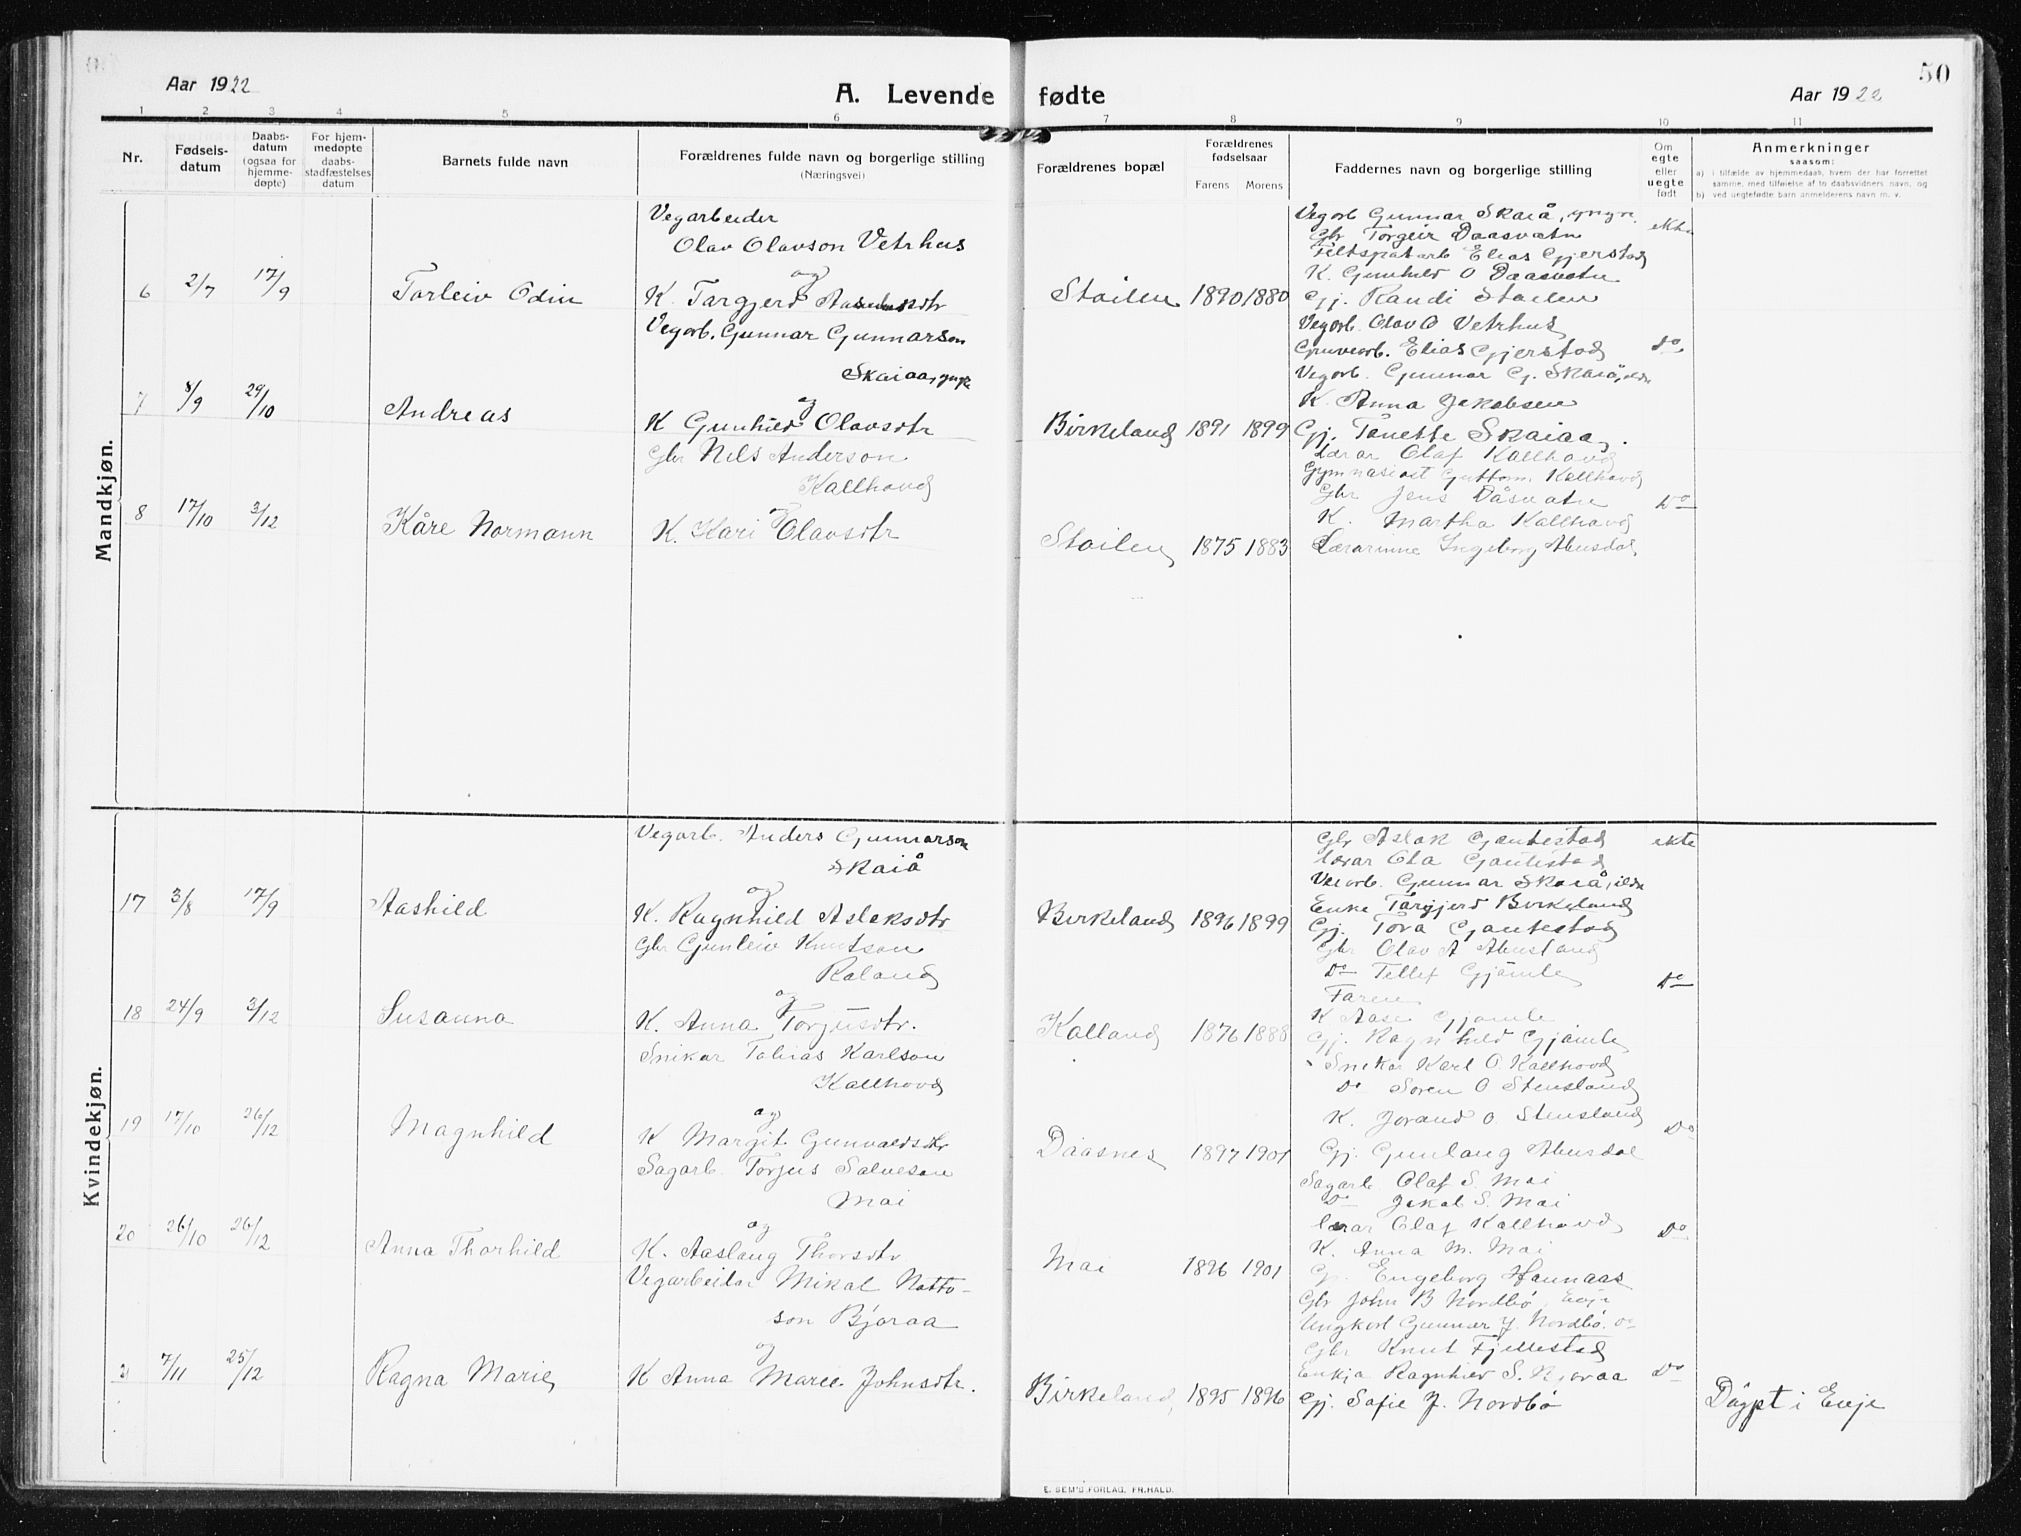 50
Aar 1922
A. Levende fødte
Aar 1922
1 2 3 4 5 6 7 8 9 10 11
Nr.
Fødsels-
datum
Daabs-
datum
(ogsaa for
hjemme-
døpte)
For hjem-
medøpte
daabs-
stadfæstelses
datum
Barnets fulde navn
Forældrenes fulde navn og borgerlige stilling
(Næringsvei)
Forældrenes bopæl
Forældrenes
fødselsaar
Farens Morens
Faddernes navn og borgerlige stilling
Om
egte
eller
uegte
født
Anmerkninger
saasom:
a) i tilfælde av hjemmedaab, hvem der har forrettet
samme, med tilføielse af to daabsvidners navn, og
b) ved uegtefødte barn anmelderens navn m. v.
Mandkjøn.
6 2/7 17/9 Torleiv Odin
Vegarbeider
Olav Olavson Vetrhus
og
K. Targjerd
Stoilen 1890 1880
Vegarb Gunnar Skaiå, yngre.
Gbr Torgeir Daasvatn
Feltspatarb Elias Gjerstad
K. Gunhild O Daasvatn
Gj. Randi Stoilen
ekte
7 8/9 29/10 Andreas
Vegarb. Gunnar Gunnarson
Skaiaa, yngre
og
K Gunhild Olavsdtr
Birkeland 1891 1899
Vegarb. Olav O Vetrhus
Gruvearb. Elias Gjerstad
Vegarb. Gunnar G. Skaiå, eldre
K. Anna Jakobsen
Gj. Tønette Skaiaa.
do
8 17/10 3/12 Kåre Normann
Gbr Nils Anderson
Kallhovd
og
K. Kari Olavsdtr
Stoilen 1875 1883
Lærar Olaf Kallhovd
Gymnasiast Guttorm Kallhovd
Gbr Jens Dåsvatn
K. Martha Kallhovd
Lærarinne Ingeborg Åbusdal
Do
Kvindekjøn.
17 3/8 17/9 Aashild
Vegarb. Anders Gunnarson
Skaiå
og
K. Ragnhild Aslaksdtr
Birkeland 1896 1899
Gbr Aslak Gautestad
Lærar Ola Gautestad
Vegarb. Gunnar Skaiå, eldre
Enke Targjerd Birkeland
Gj. Tora Gautestad
ekte
18 24/9 3/12 Susanna
Gbr Gunleiv Knutson
Røland
og
K. Anna Torjusdtr.
Kalland 1876 1888
Gbr Olav A Abusland
Do Tellef Gjømle
Faren
K Aase Gjømle
Gj. Ragnhild Gjømle
Do
19 17/10 26/12 Magnhild
Snikar Tobias Karlson
Kallhovd
og
K Margit Gunvaldsdtr
Daasnes 1897 1901
Snikar Karl O. Kallhovd
Do Søren O Stensland
K. Jorand O. Stensland
Gj. Gunlaug Abusdal
Do
20 26/10 26/12 Anna Thorhild
Sagarb. Torjus Salveson
Mai
og
K. Aaslaug Thorsdtr
Mai 1896 1901
Sagarb. Olaf S. Mai
Do Jakob S. Mai
Lærar Olaf Kallhovd
K. Anna M. Mai
Gj. Engeborg Hannaas
Do
21 7/11 25/12 Ragna Marie
Vegarbeidar Mikal Natto-
son Bjoraa
og
K Anna Marie Johnsdtr.
Birkeland, 1895 1896
Gbr John B Nordbø, Evje
Ungkarl Gunnar J. Nordbø. Do
Gbr Knut Fjellestad
Enkja Ragnhild S. Bjoraa
Gj. Sofie J. Nordbø
Do
Døypt i Evje
E. SEM'S FORLAG, FR.HALD.